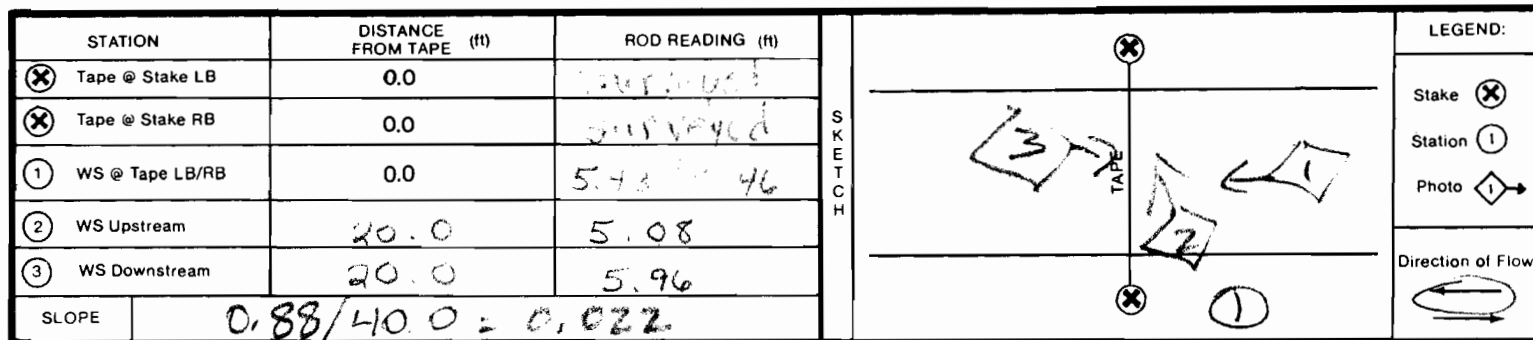 STATION DISTANCE FROM TAPE (ft) ROD READING (ft)
Tape @ Stake LB 0.0 surveyed
Tape @ Stake RB 0.0 surveyed
1 WS @ Tape LB/RB 0.0 5.43 46
2 WS Upstream 20.0 5.08
3 WS Downstream 20.0 5.96
SLOPE 0.88/40.0 = 0.022
SKETCH
3 TAPE 1
2
1
LEGEND:
Stake
Station 1
Photo 1
Direction of Flow